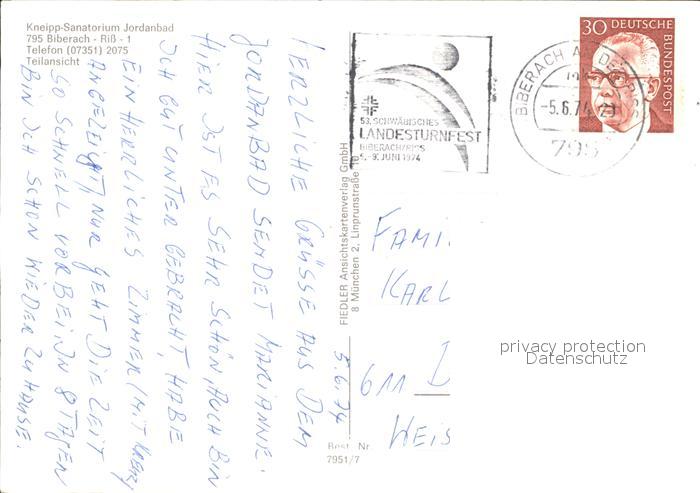 Kneipp-Sanatorium Jordanbad
795 Biberach - Riß - 1
Telefon (07351) 2075
Teilansicht
53. SCHWÄBISCHES
LANDESTURNFEST
BIBERACH/RISS
5.-9. JUNI 1974
BIBERACH AN DER RISS
-5.6.74
795
30 DEUTSCHE
BUNDESPOST
HERZLICHE GRÜSSE AUS DEM
JORDANBAD SENDET MARIANNE.
HIER IST ES SEHR SCHÖN, AUCH BIN
ICH GUT UNTER GEBRACHT, HABE
EIN HERRLICHES ZIMMER (MIT
ANGEZEIGT) NUR GEHT DIE ZEIT
SO SCHNELL VORBEI IN 8 TAGEN
BIN ICH SCHON WIEDER ZU HAUSE.
5.6.74
FIEDLER Ansichtskartenverlag GmbH
8 München 2, Linprunstraße
Best. Nr.
7951/7
FAMI
KARL
611
WEIS
privacy protection
Datenschutz